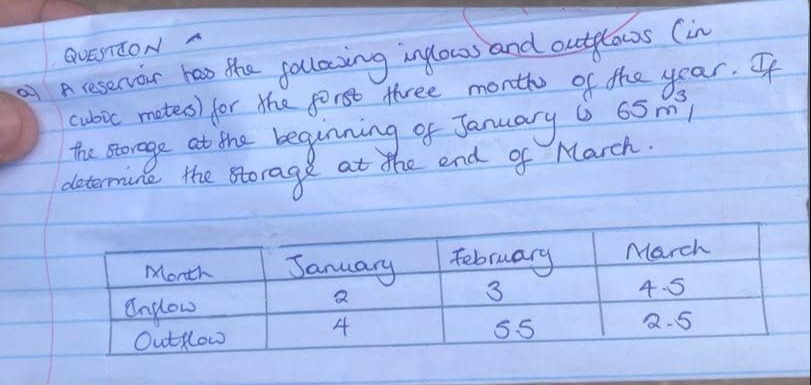 QUESTION
a) A reservoir has the following inflows and outflows (in
cubic meters) for the first three months of the year. If
the storage at the beginning of January is 65 m³,
determine the storage at the end of March.
Month January February March
Inflow 2 3 4.5
Outflow 4 5.5 2.5